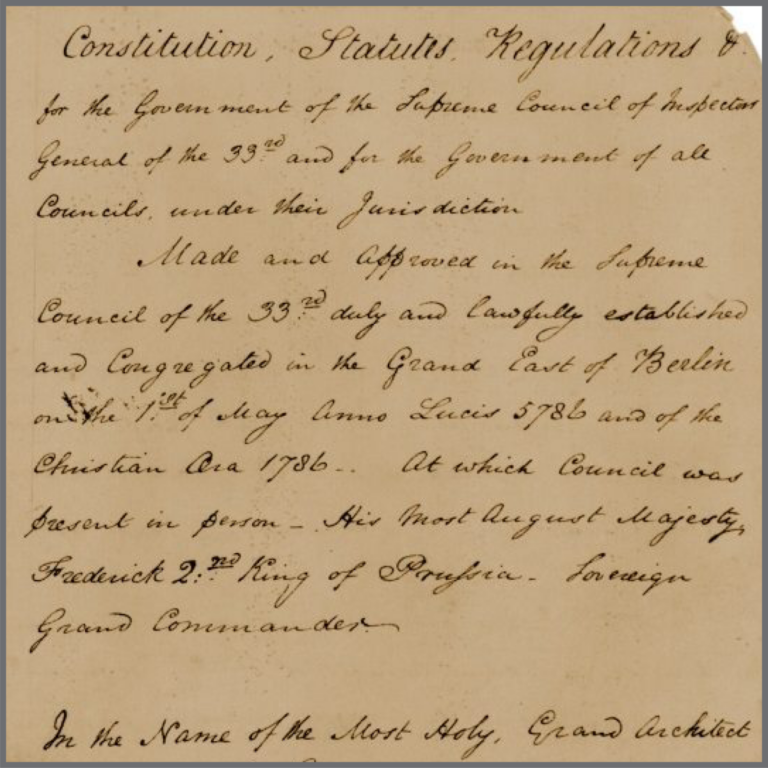 Constitution, Statutes, Regulations &.
for the Government of the Supreme Council of Inspectors
General of the 33rd and for the Government of all
Councils, under their Jurisdiction
Made and Approved in the Supreme
Council of the 33rd duly and lawfully established
and Congregated in the Grand East of Berlin
on the 1st of May Anno Lucis 5786 and of the
Christian Æra 1786-. At which Council was
present in person - His Most August Majesty,
Frederick 2nd King of Prussia - Sovereign
Grand Commander
In the Name of the Most Holy, Grand Architect